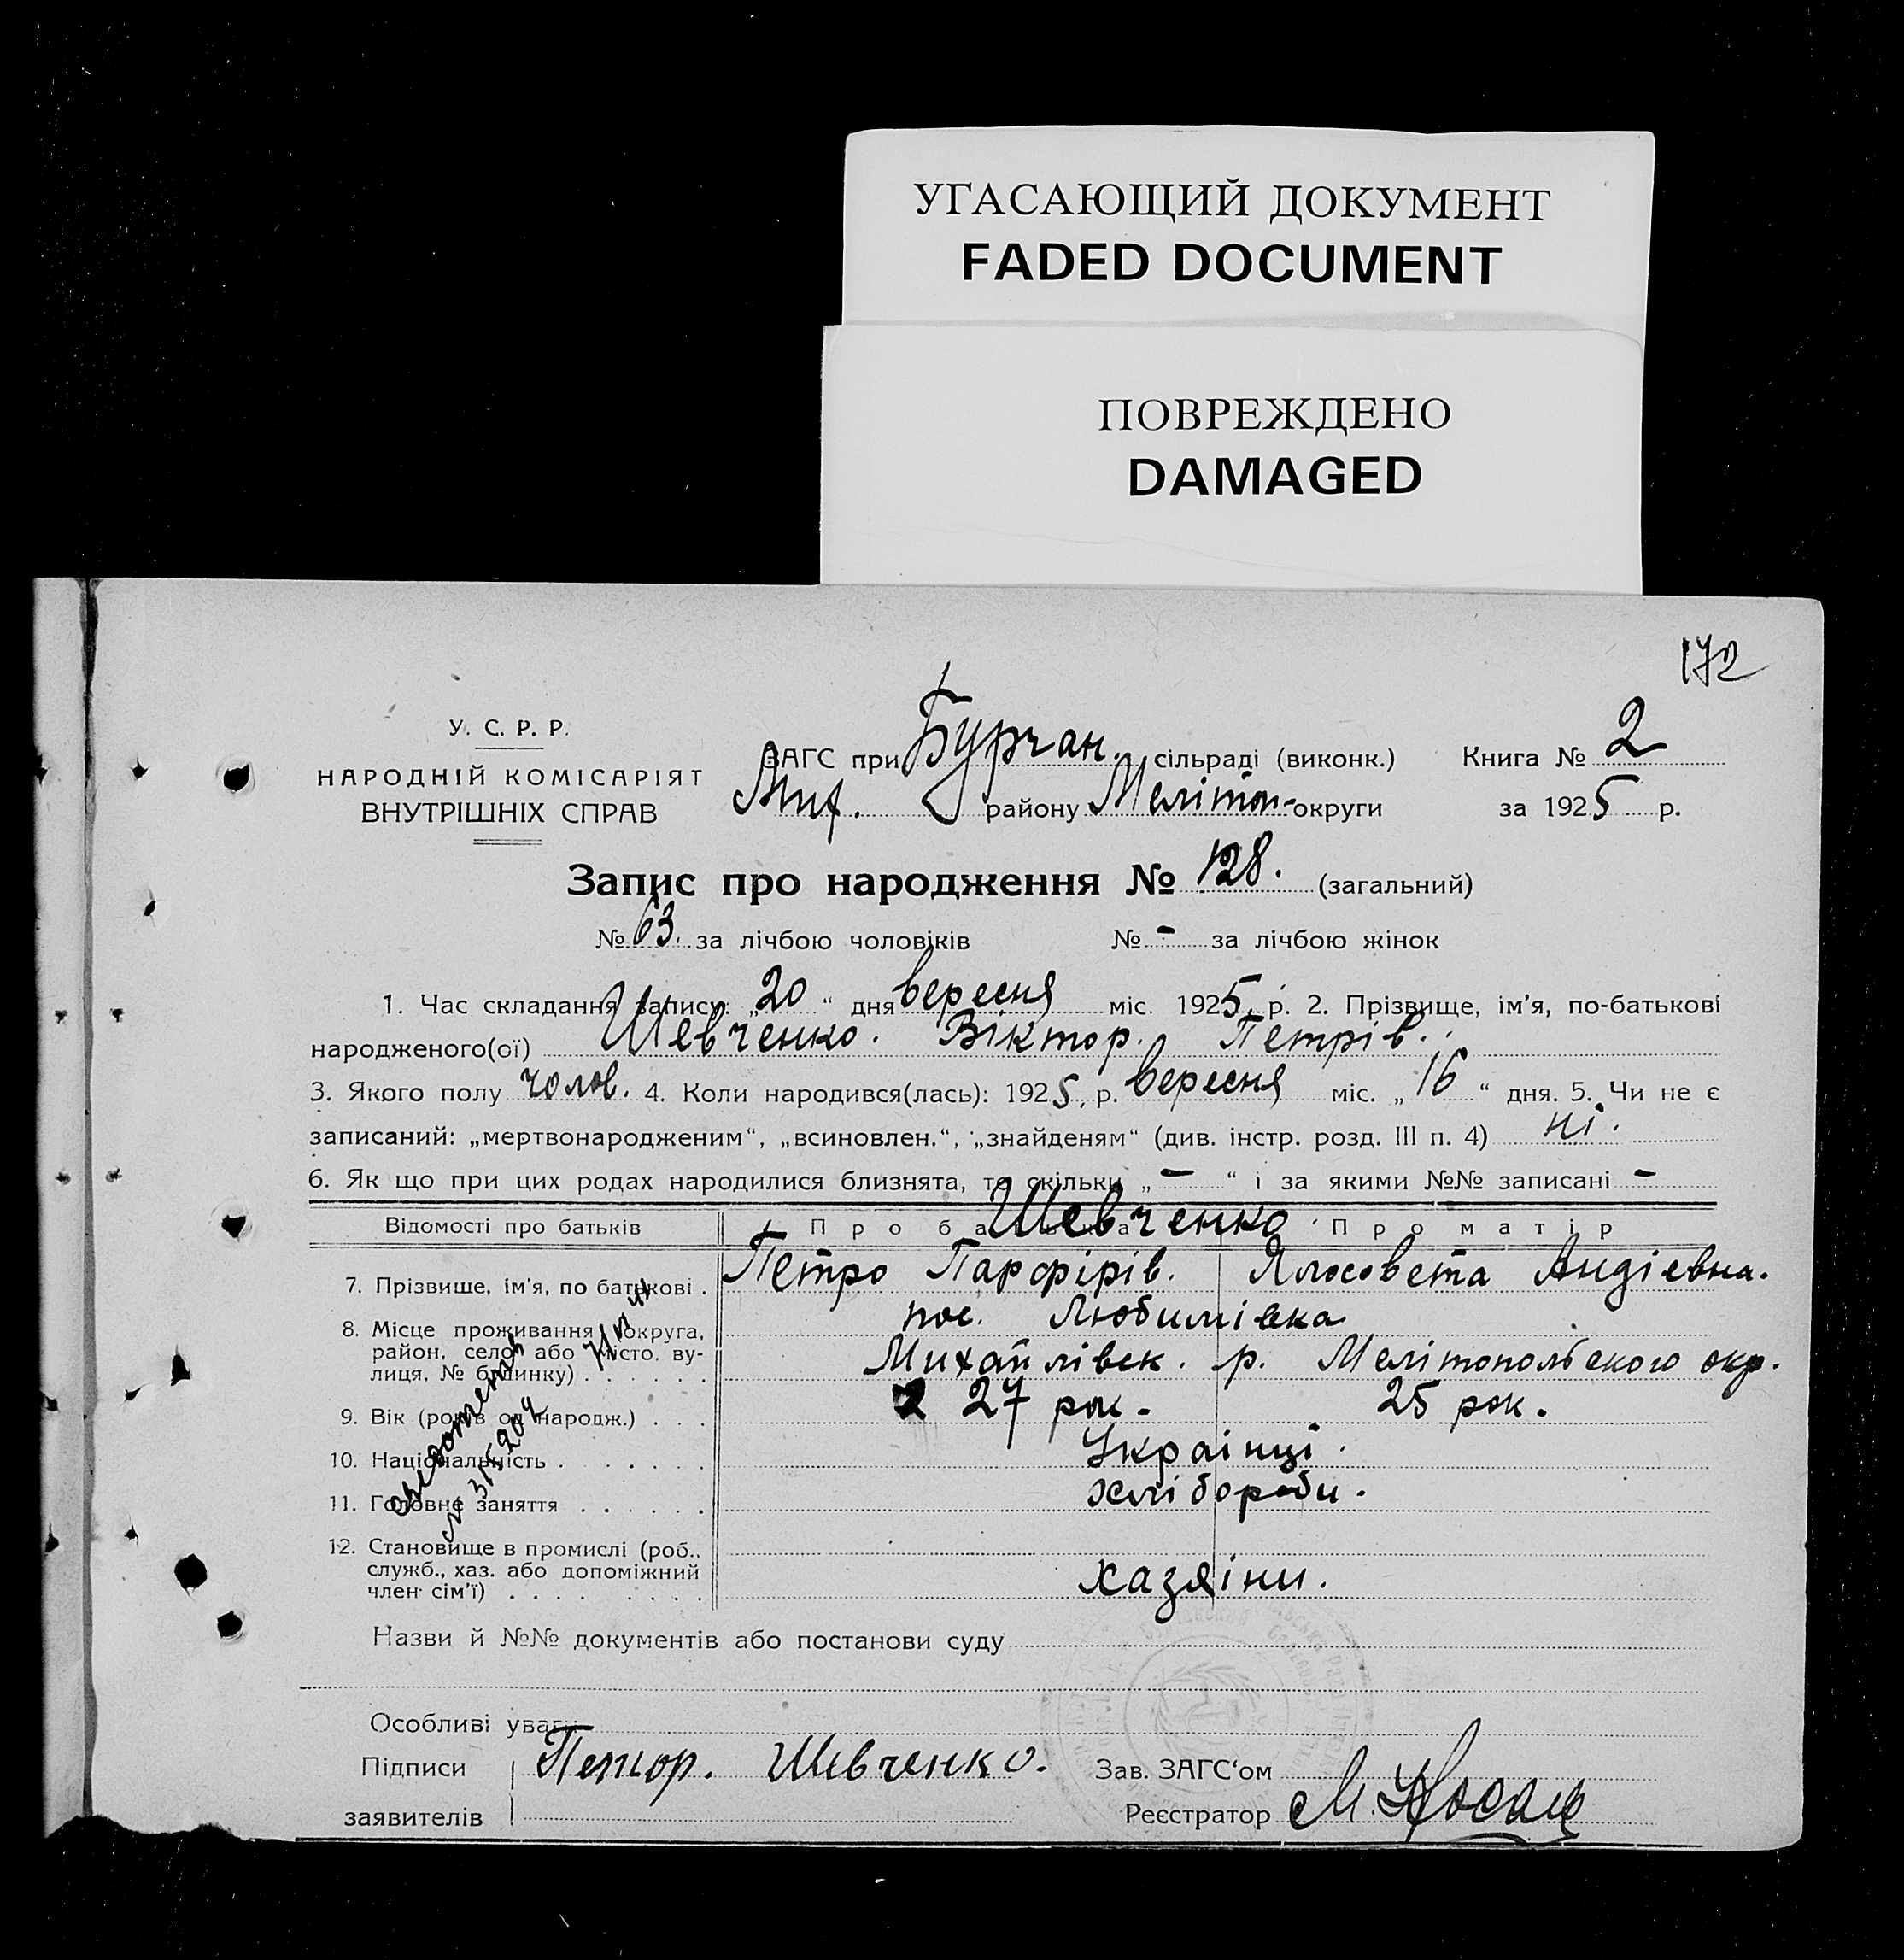 УГАСАЮЩИЙ ДОКУМЕНТ
FADED DOCUMENT
ПОВРЕЖДЕНО
DAMAGED
172
У. С. Р. Р.
НАРОДНІЙ КОМІСАРІЯТ
ВНУТРІШНІХ СПРАВ
ЗАГС при Бурчан. сільраді (виконк.) Книга № 2
Мих. району Мелітоп- округи за 1925 р.
Запис про народження № 128. (загальний)
№ 63. за лічбою чоловіків № - за лічбою жінок
1. Час складання запису: „20“ дня вересня міс. 1925 р. 2. Прізвище, ім'я, по-батькові
народженого(ої) Шевченко. Віктор. Петрів.
3. Якого полу чолов. 4. Коли народився(лась): 1925, р. вересня міс. „16“ дня. 5. Чи не є
записаний: „мертвонародженим“, „всиновлен.“, „знайденям“ (див. інстр. розд. III п. 4) ні.
6. Як що при цих родах народилися близнята, то скільки „—“ і за якими №№ записані -
Відомості про батьків Про батька Шевченко Про матір
7. Прізвище, ім'я, по батькові . Петро Парфірів. Андіевна.
8. Місце проживання (округа, пос. Любимівка
район, село або місто, ву- Михайлівск. р. Мелітопольского окр.
лиця, № будинку) . . . . . .
9. Вік (років од народж.) . . . 27 рок. 25 рок.
10. Національність . . . . . . Украінці.
11. Головне заняття . . . . . . хлібороби.
12. Становище в промислі (роб.,
служб., хаз. або допоміжний
член сім'ї) . . . . . . . . хазяіни.
Назви й №№ документів або постанови суду
Особливі уваги
Підписи Петор. Шевченко. Зав. ЗАГС'ом
заявителів Реєстратор М.